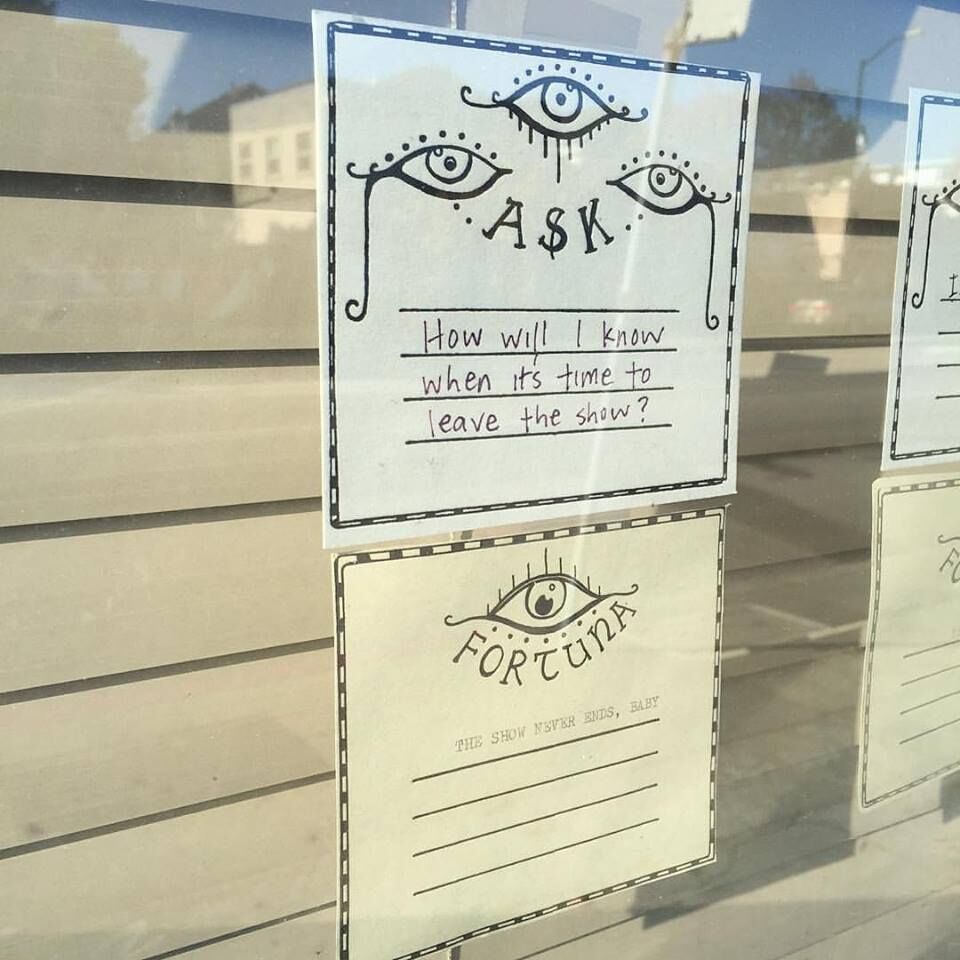 ASK
How will I know
when it's time to
leave the show?
FORTUNA
THE SHOW NEVER ENDS, BABY